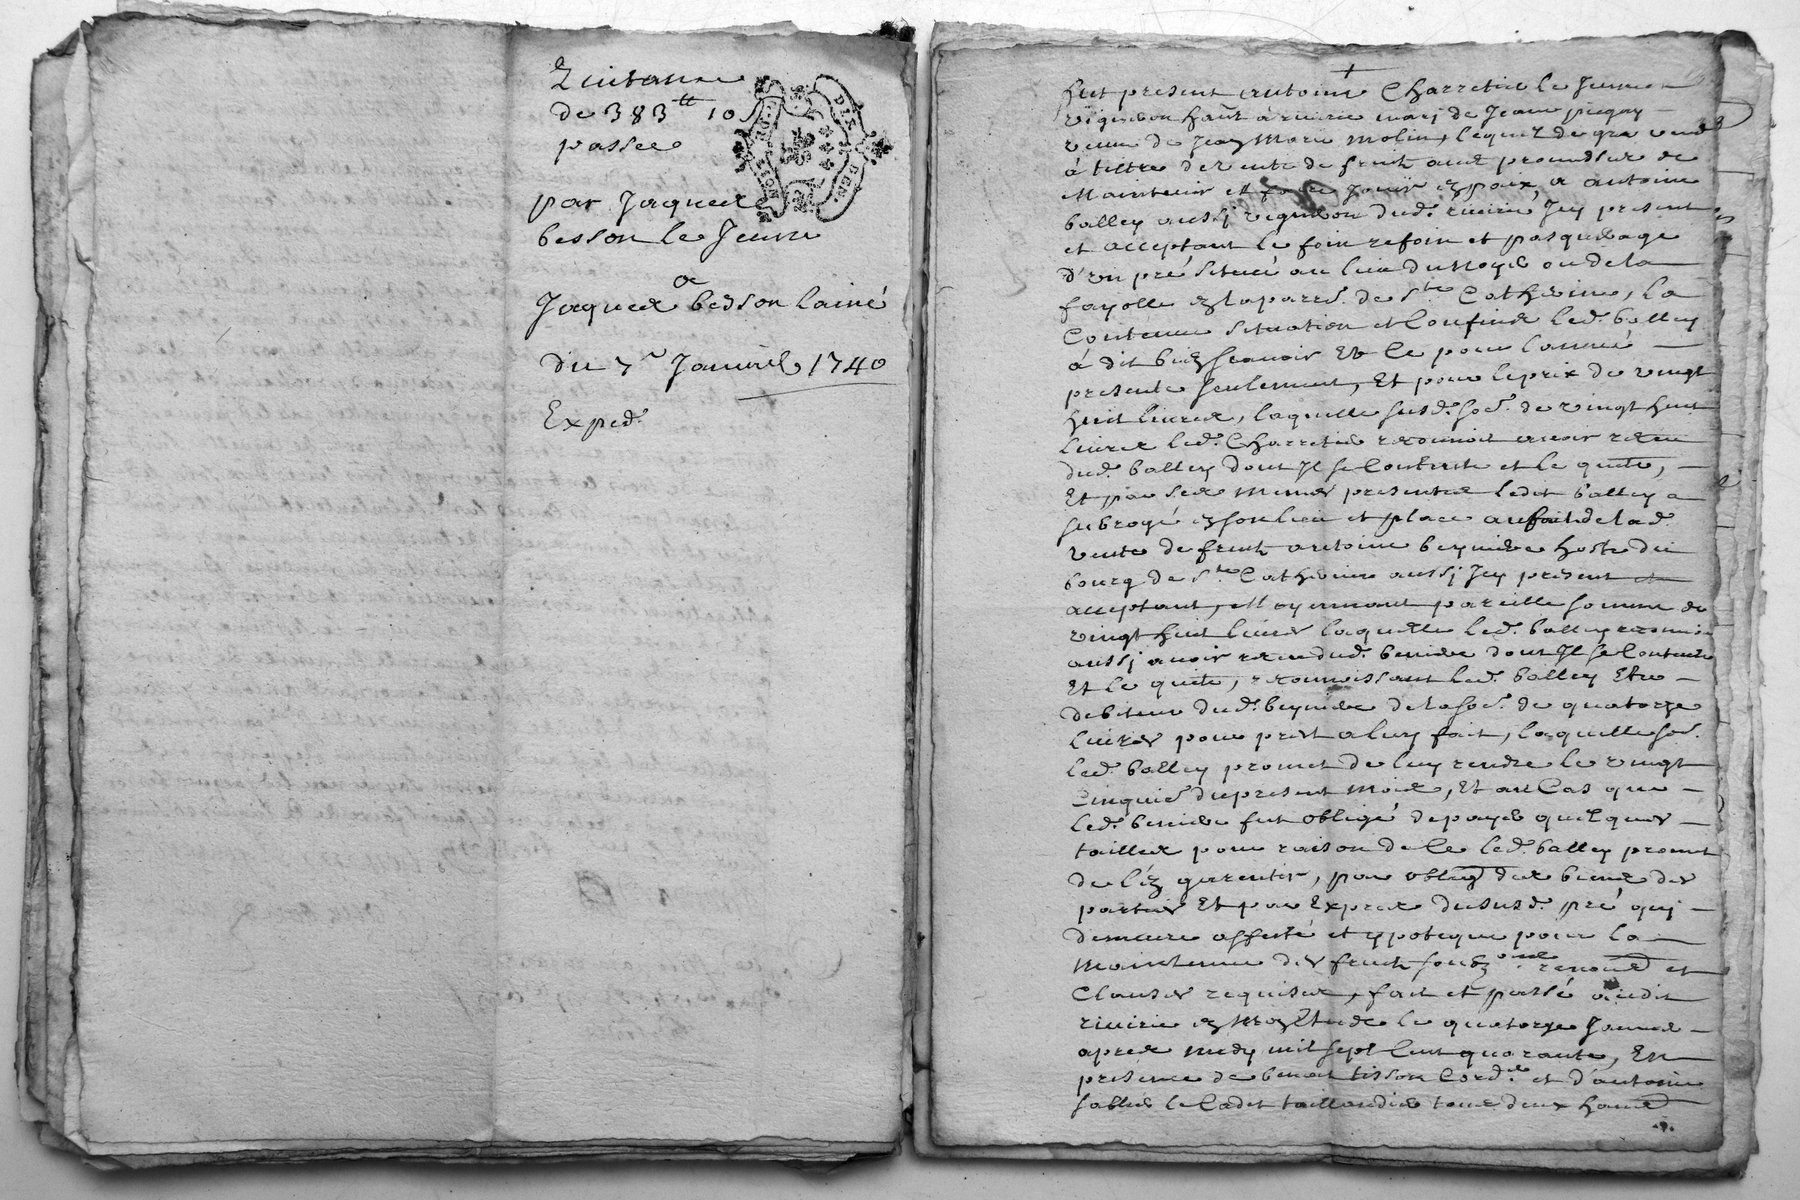 Quitance
de 383 tt 10 s
passee
par Jaques
besson le Jeune
a
Jaques besson lainé
du 7e Januier 1740
Exped.
DIX DEN.
fut present antoine Charretier le Jeune
vigneron haut a riuirie mary de Jeane
veuue de Jean Marie molin, lequel de gre vend
à tiltre de vente de fruit auec promesse de
Maintenir et faire Jouir en paix, a antoine
balley aussi vigneron dud. riuirie Icy present
et acceptant le foin refoin et pasquerage
d'un pré situé au lieu du Noyer ou de la
fayolle en la parre. de Ste Catherine, la
Contenue situation et Confins led. balley
à dit bien scauoir Et ce pour l'année
presente seulement, Et pour le prix de vingt
huit liures, laquelle susd. soe. de vingt huit
liures led. Charretier reconnoit auoir receu
dud. balley dont Il se Contente et le quite,
Et par ses mesmes presentes ledit balley a
subrogé en son lieu et place au fait de lad.
vente de fruit antoine beyniere hoste du
bourg de Ste Catherine aussi Icy present et
acceptant, Moyennant pareille somme de
vingt huit liures laquelle led. balley reconnoit
aussi auoir receu dud. beniere dont Il se Contente
Et le quite, reconnoissant led. balley Etre
debiteur dud. beyniere de la soe. de quatorze
liures pour prest a luy fait, laquelle soe.
led. balley promet de luy rendre le vingt
Cinquie. du present mois, Et au Cas que
led. beniere fut obligé de payer quelques
tailles pour raison de ce led. balley promet
de l'en garentir, par oblig. des biens des
parties Et par Expres du susd. pré qui
demeure affecté et ypoteque pour la
Maintenue des fruits renond et
Clauses requises, fait et passé audit
riuirie en Mon Etude le quatorze Januier
apres midy mil sept Cent quarante, En
presence de benoit tisson Cord. et d'antoine
sablier le Cadet taillandier tous deux